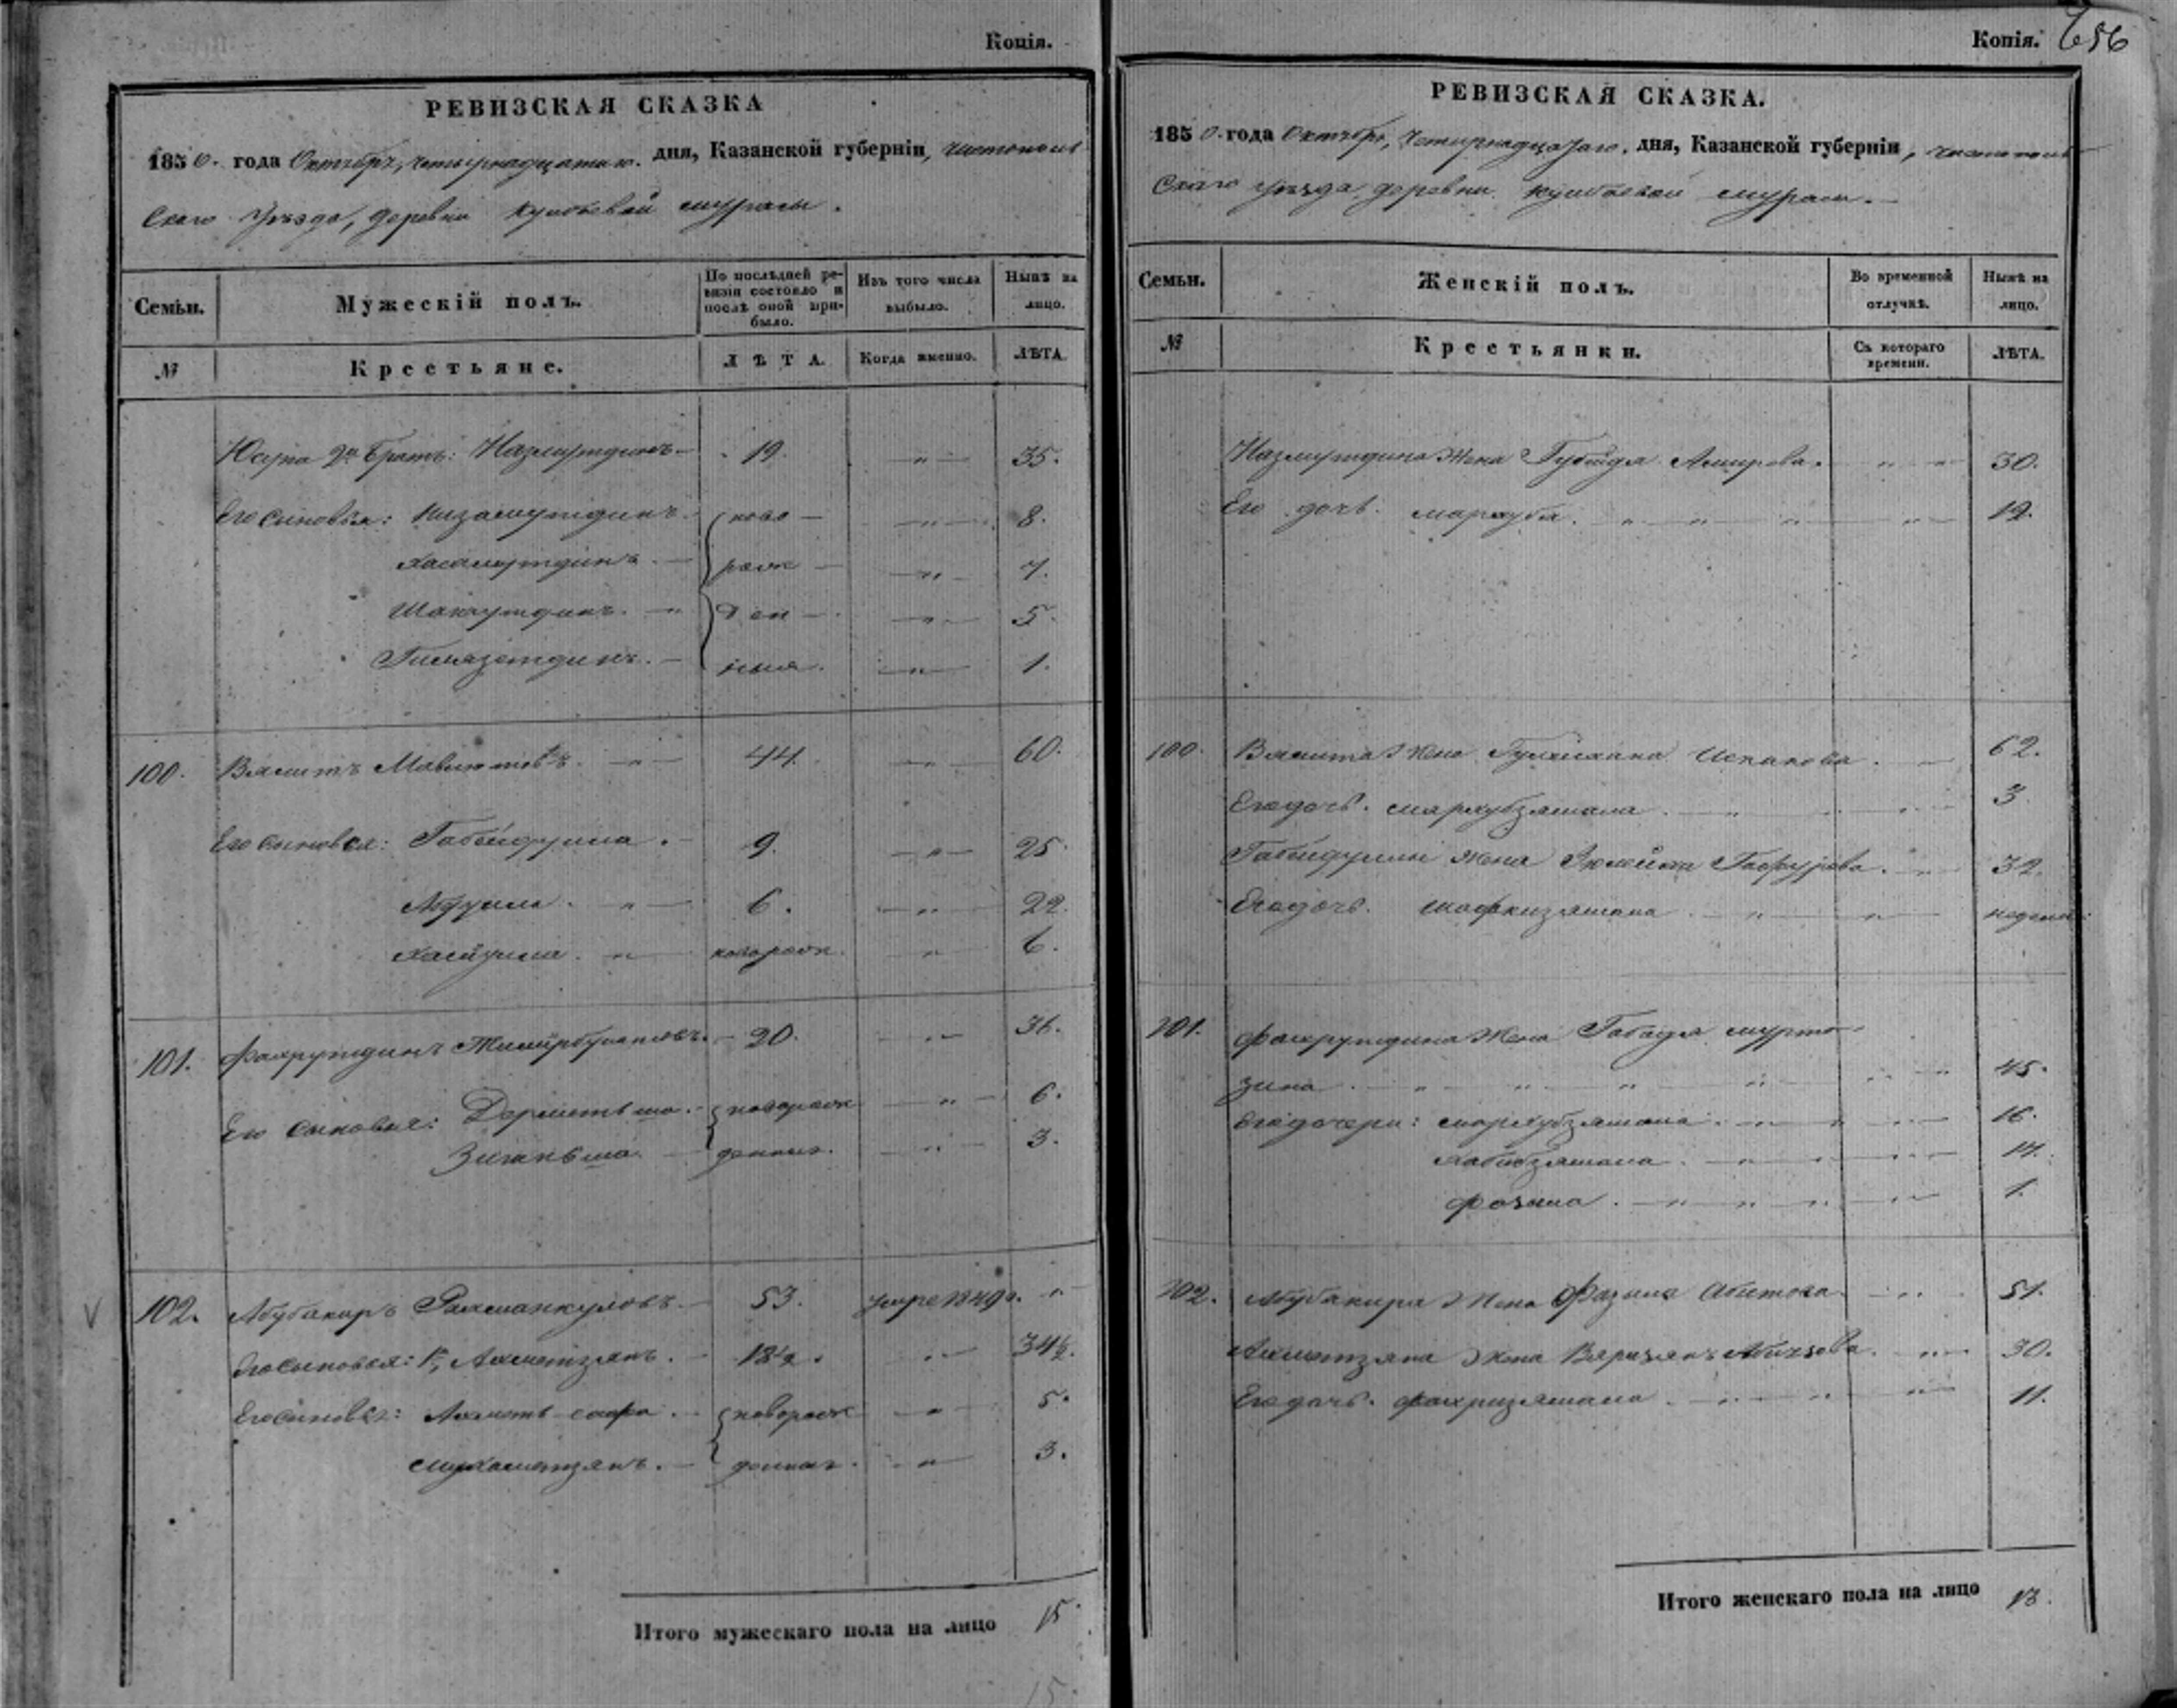 Копія.
РЕВИЗСКАЯ СКАЗКА
1850. года Октября, четырнадцатаго. дня, Казанской губерніи, чистополь
скаго уѣзда, деревни
Семьи.
Мужескій полъ.
По послѣдней ре-
визіи состояло и
послѣ оной при-
было.
Изъ того числа
выбыло.
Нынѣ на
лицо.
№
Крестьяне.
ЛѢТА.
Когда именно.
ЛѢТА.
Юсупа 2й братъ: Назмутдинъ 19. " 35.
Его сыновья: Низамутдинъ ново " 8.
Хасамутдинъ рож " 7.
ден " 5.
Гилязетдинъ. ныя. " 1.
100. Вялитъ Мавлютовъ. " 44. " 60.
Его сыновья: Габейдулла. 9. " 25.
Абдулла. " 6. " 22.
Хайрулла. " новорож. " 6.
101. Фахрутдинъ 20. " 36.
Его сыновья: новорож " 6.
Зиганьша. денныя. " 3.
102. Абубакиръ Рахманкуловъ. 53. умре 1849г. "
Его сыновья: 1й, Ахметзянъ. 18½. " 34½.
Его сыновья: Ахметь сафа. новорож " 5.
Мухаметзянъ. денныя. " 3.
Итого мужескаго пола на лицо 15.
15.
Копія. 656
РЕВИЗСКАЯ СКАЗКА.
1850. года Октября, Четырнадцатаго. дня, Казанской губерніи, чистополь
скаго уѣзда деревни
Семьи.
Женскій полъ.
Во временной
отлучкѣ.
Нынѣ на
лицо.
№
Крестьянки.
Съ котораго
времени.
ЛѢТА.
Назмутдина жена Губейдя Амирова. " " 30.
Его дочь. " " " " 12.
100. Вялита жена 62.
Его дочь. 3.
Габейдуллы жена Гафурова. " 32.
Его дочь. " " недели.
101. Фахрутдина жена Габида мурта-
зина. " " " " " " 45.
Его дочери: " " " 16.
Хабибзямала. " " " 14.
" " " " 1.
102. Абубакира жена Фазыла Абитова. " 51.
Ахметзяна жена " 30.
Его дочь. Фахризямала. " " " " 11.
Итого женскаго пола на лицо 13.